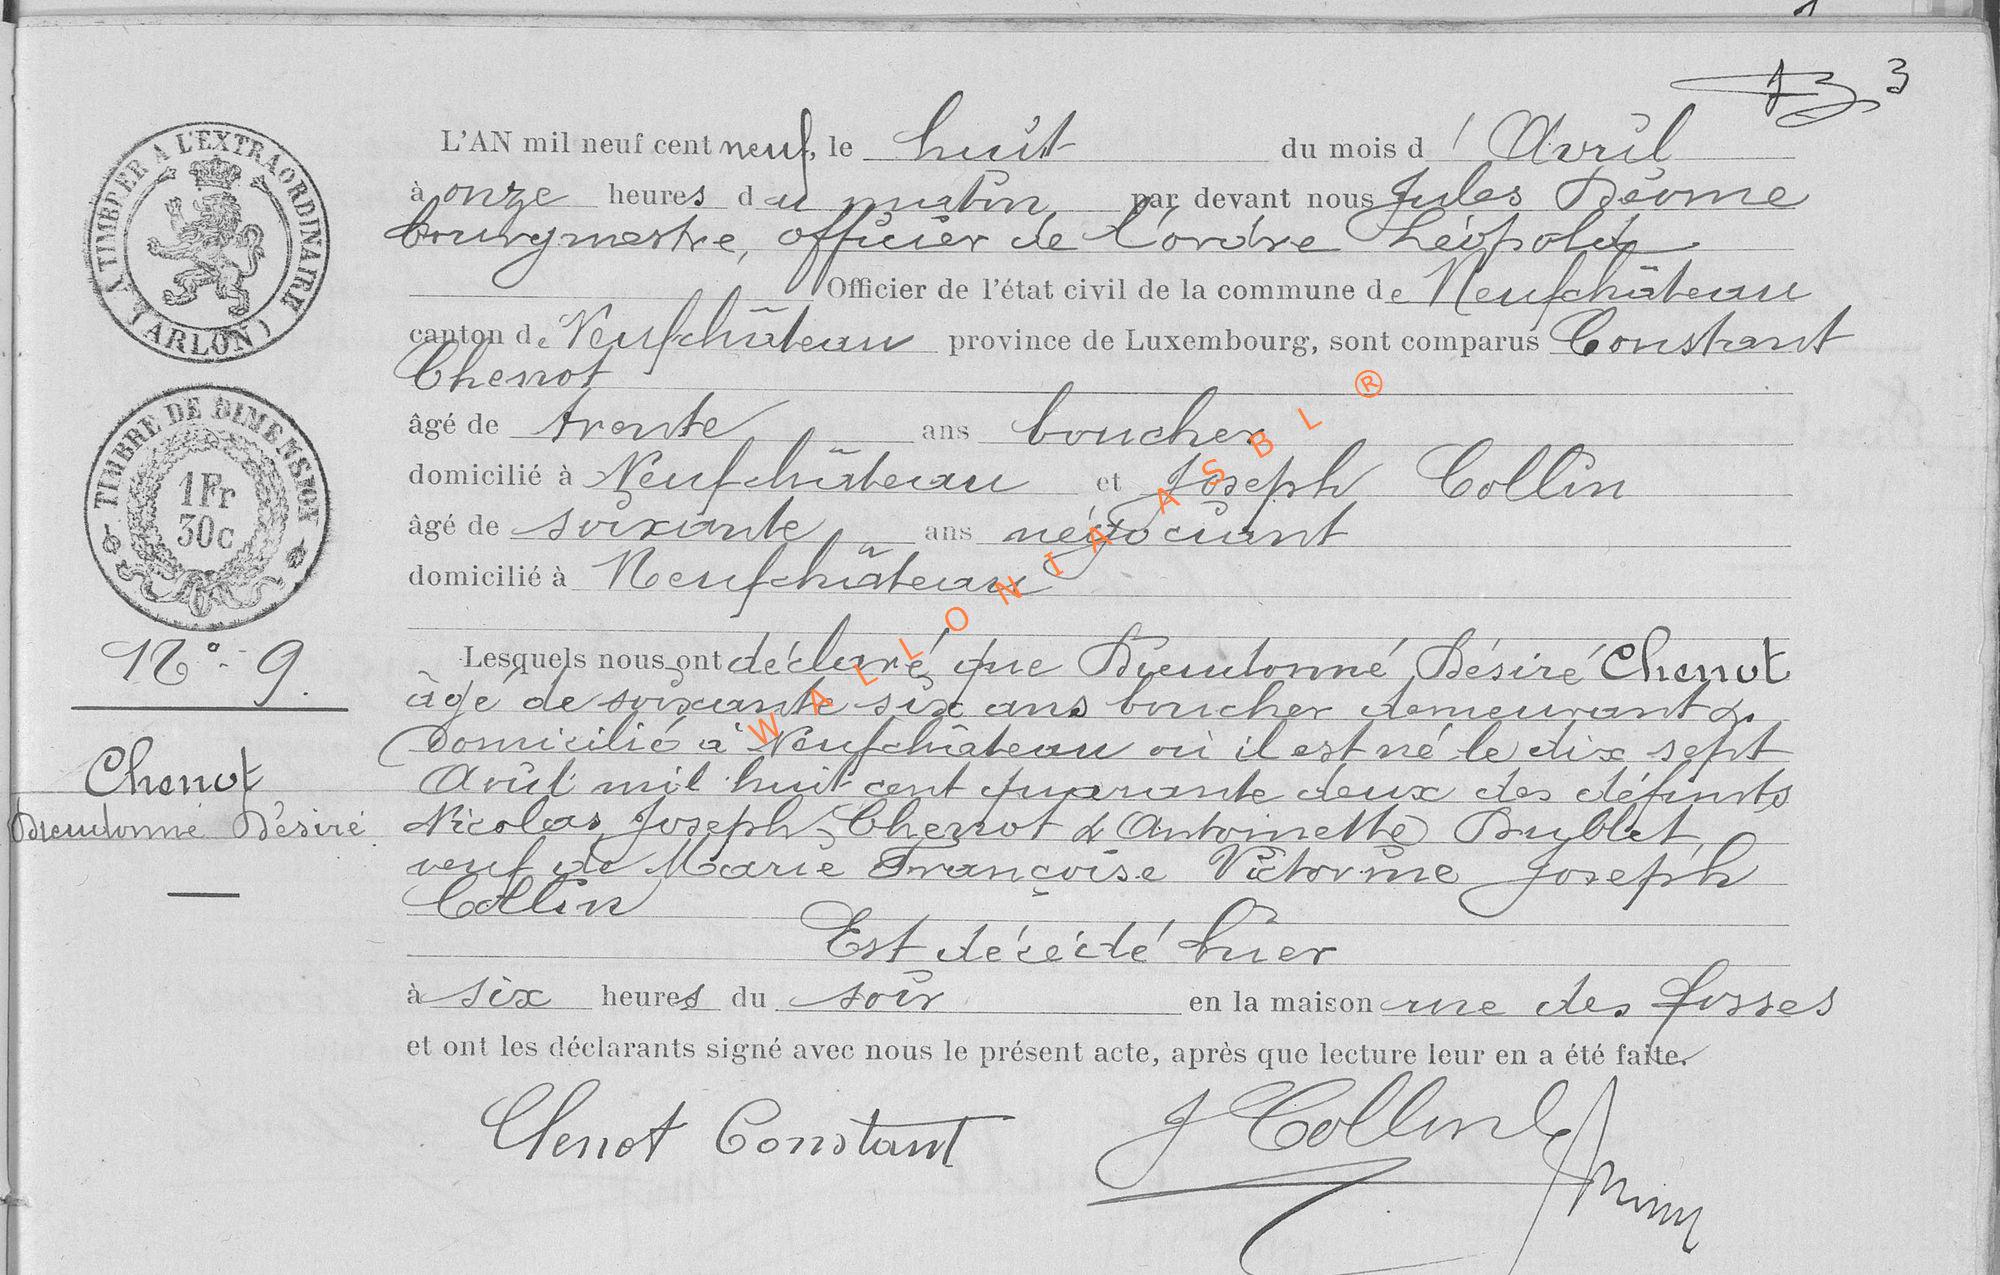 3
L'AN mil neuf cent neuf, le huit du mois d'Avril
à onze heures du matin par devant nous Jules
bourgmestre, officier de l'ordre Léopold
Officier de l'état civil de la commune de Neufchâteau
canton de Neufchâteau province de Luxembourg, sont comparus Constant
Chenot
âgé de trente ans boucher
domicilié à Neufchâteau et Joseph Collin
âgé de soixante ans négociant
domicilié à Neufchâteau
Lesquels nous ont déclaré que Dieudonné Désiré Chenot
âgé de soixante six ans boucher demeurant &
domicilié à Neufchâteau où il est né le dix sept
Avril mil huit cent quarante deux des défunts
Nicolas Joseph Chenot & Antoinette
veuf de Marie Françoise Victorine Joseph
Collin
Est décédé hier
à six heures du soir en la maison rue des fosses
et ont les déclarants signé avec nous le présent acte, après que lecture leur en a été faite.
Chenot Constant
J Collin
A TIMBRER A L'EXTRAORDINAIRE
(ARLON)
TIMBRE DE DIMENSION
1Fr
30c
N° 9.
Chenot
Dieudonné Désiré
WALLONIA ASBL ®